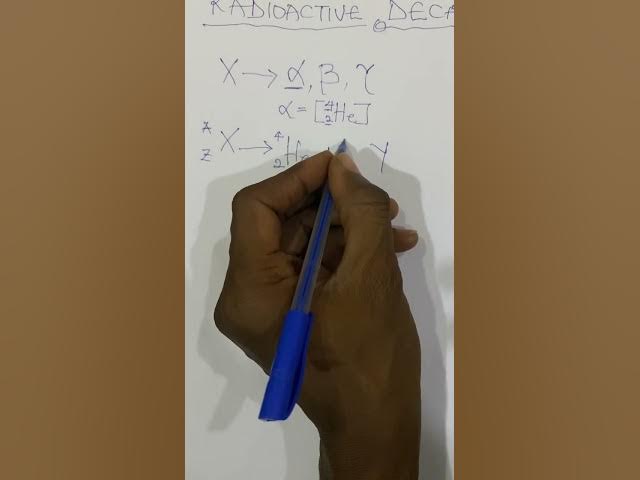 RADIOACTIVE DECA
X → α, β, γ
α = [⁴₂He]
ᴬ_Z X → ⁴₂He Y